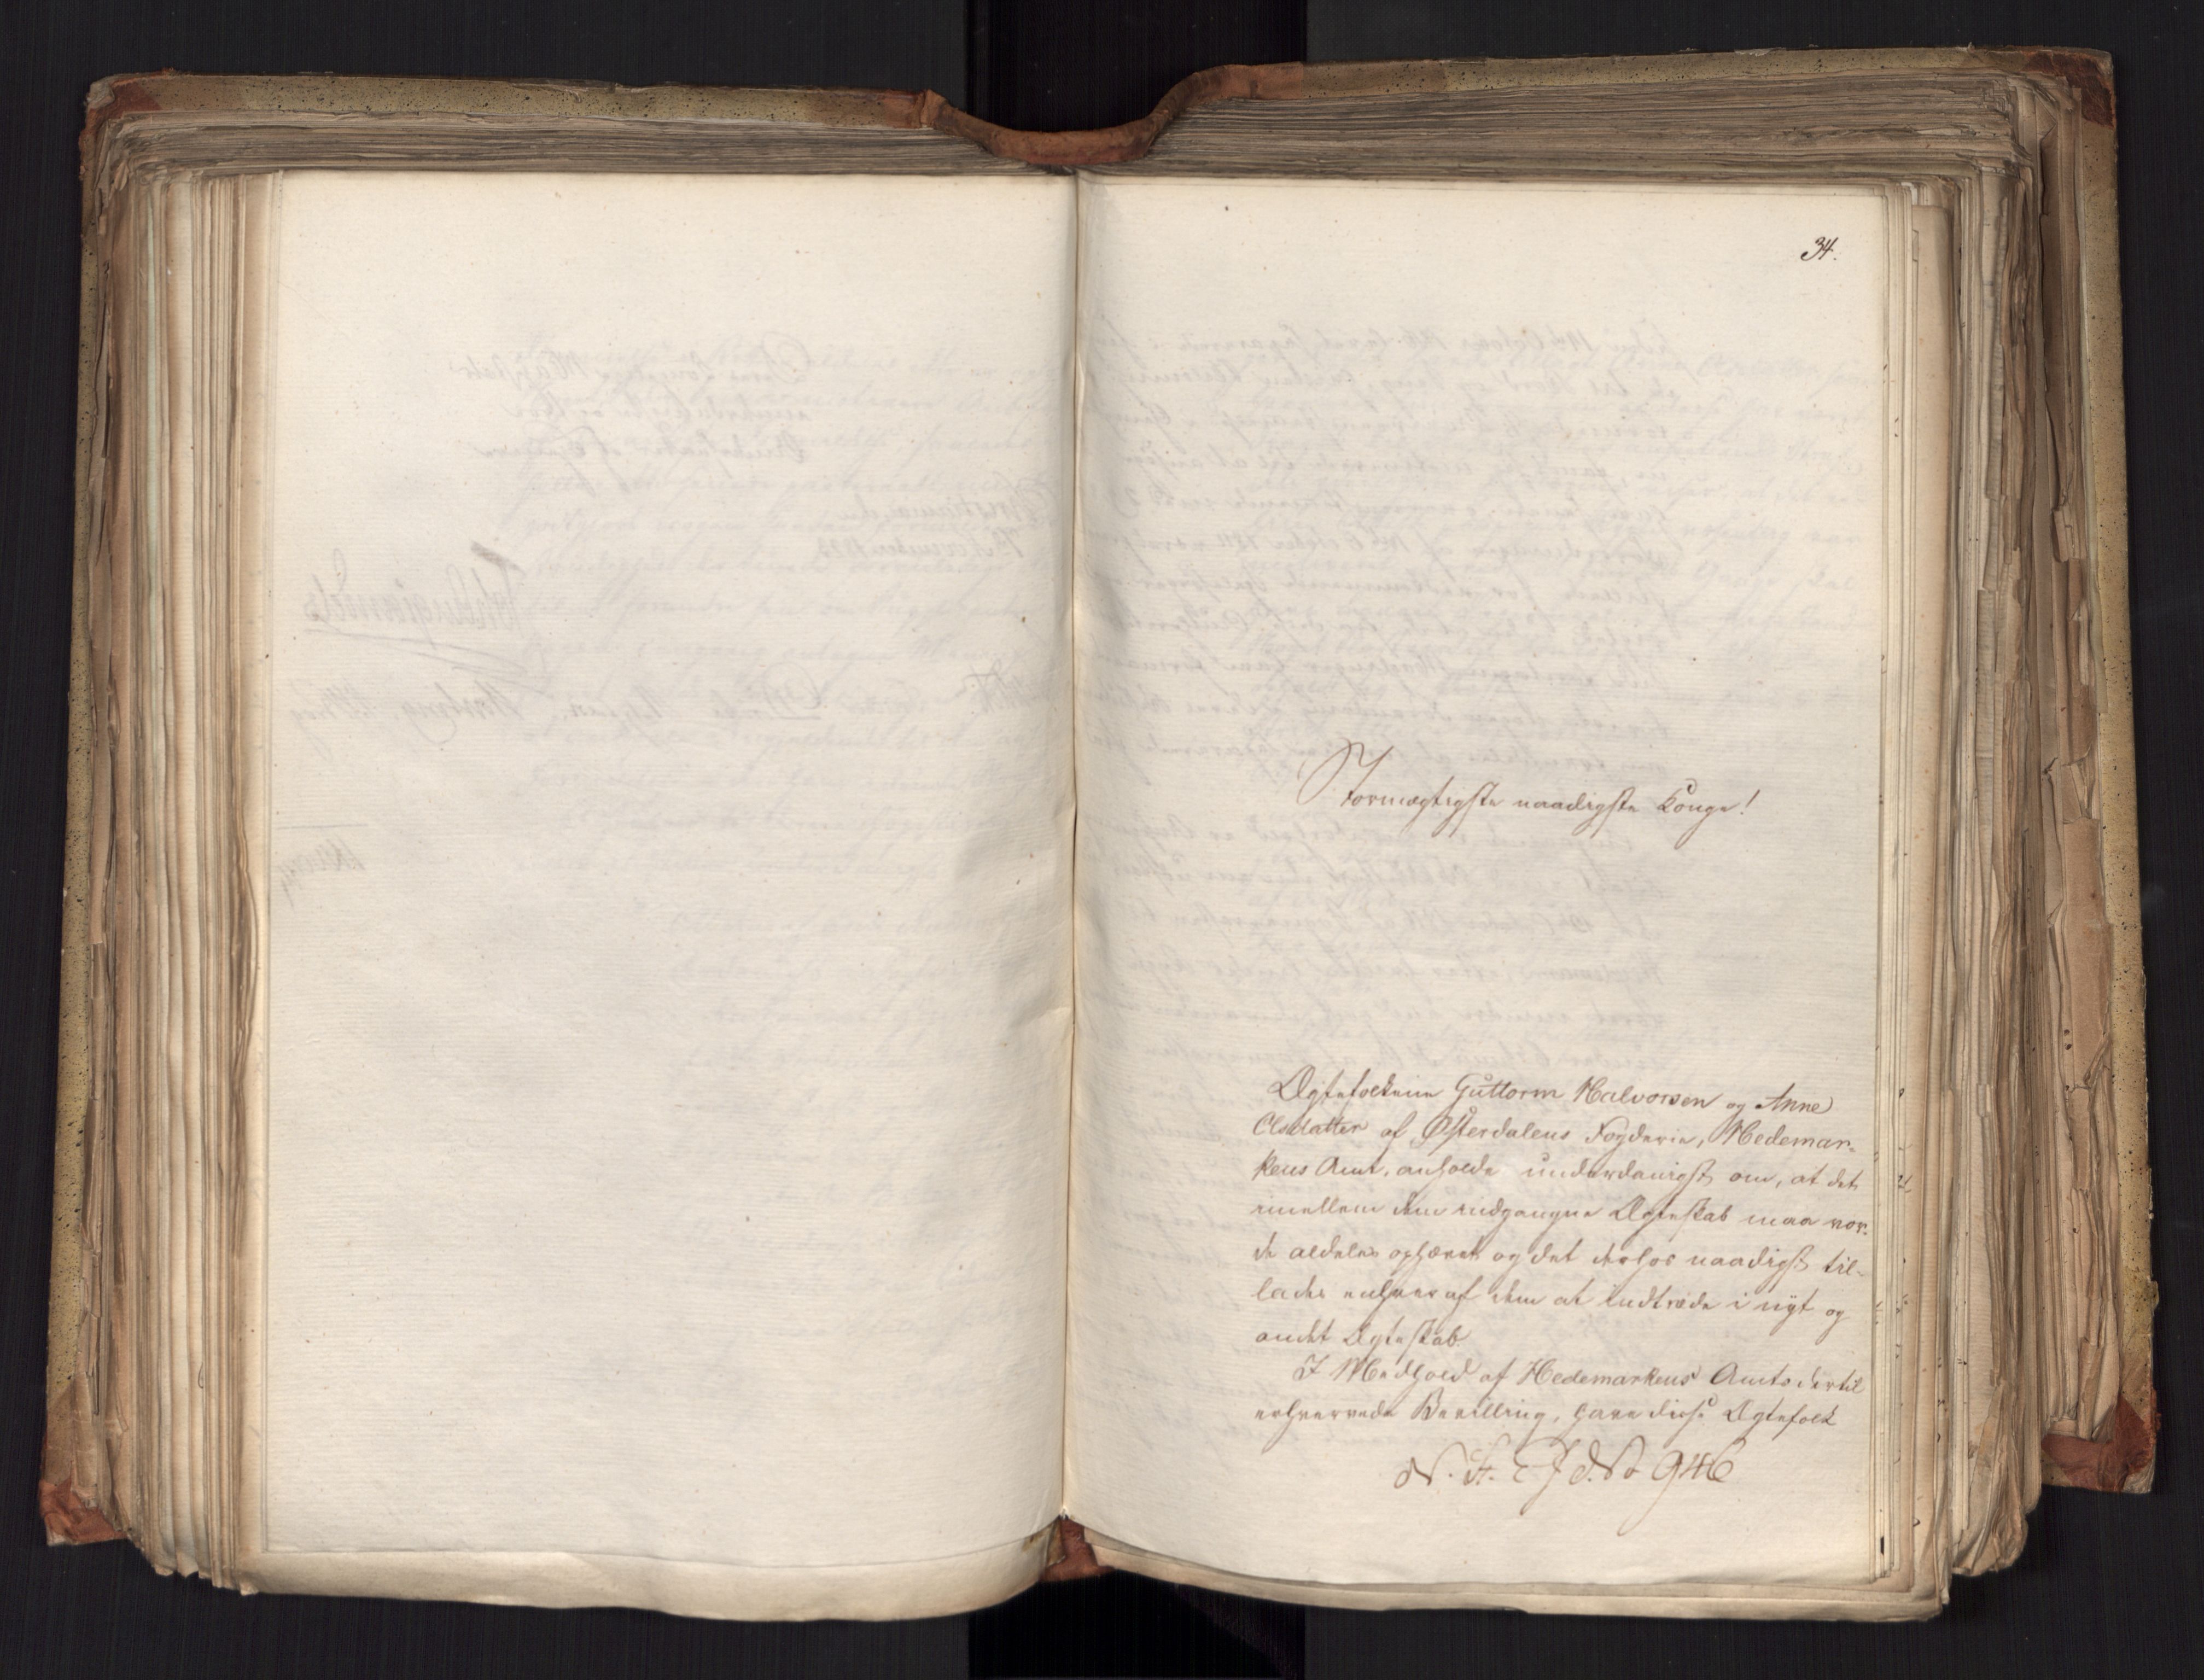 34.
Stormægtigste naadigste Konge!
Ægtefolkene Guttorm Halvorsen og Anne
Olsdatter af Østerdalens Fogderie, Hedemar-
kens Amt, anholde underdanigst om, at det
imellem dem indgangne Ægteskab maa vor-
de aldeles ophævet og det derhos naadigst til-
lades enhver af dem at indtræde i nyt og
andet Ægteskab.
I Medhold af Hedemarkens Amts dertil
erhvervede Bevilling, have disse Ægtefolk
No 946